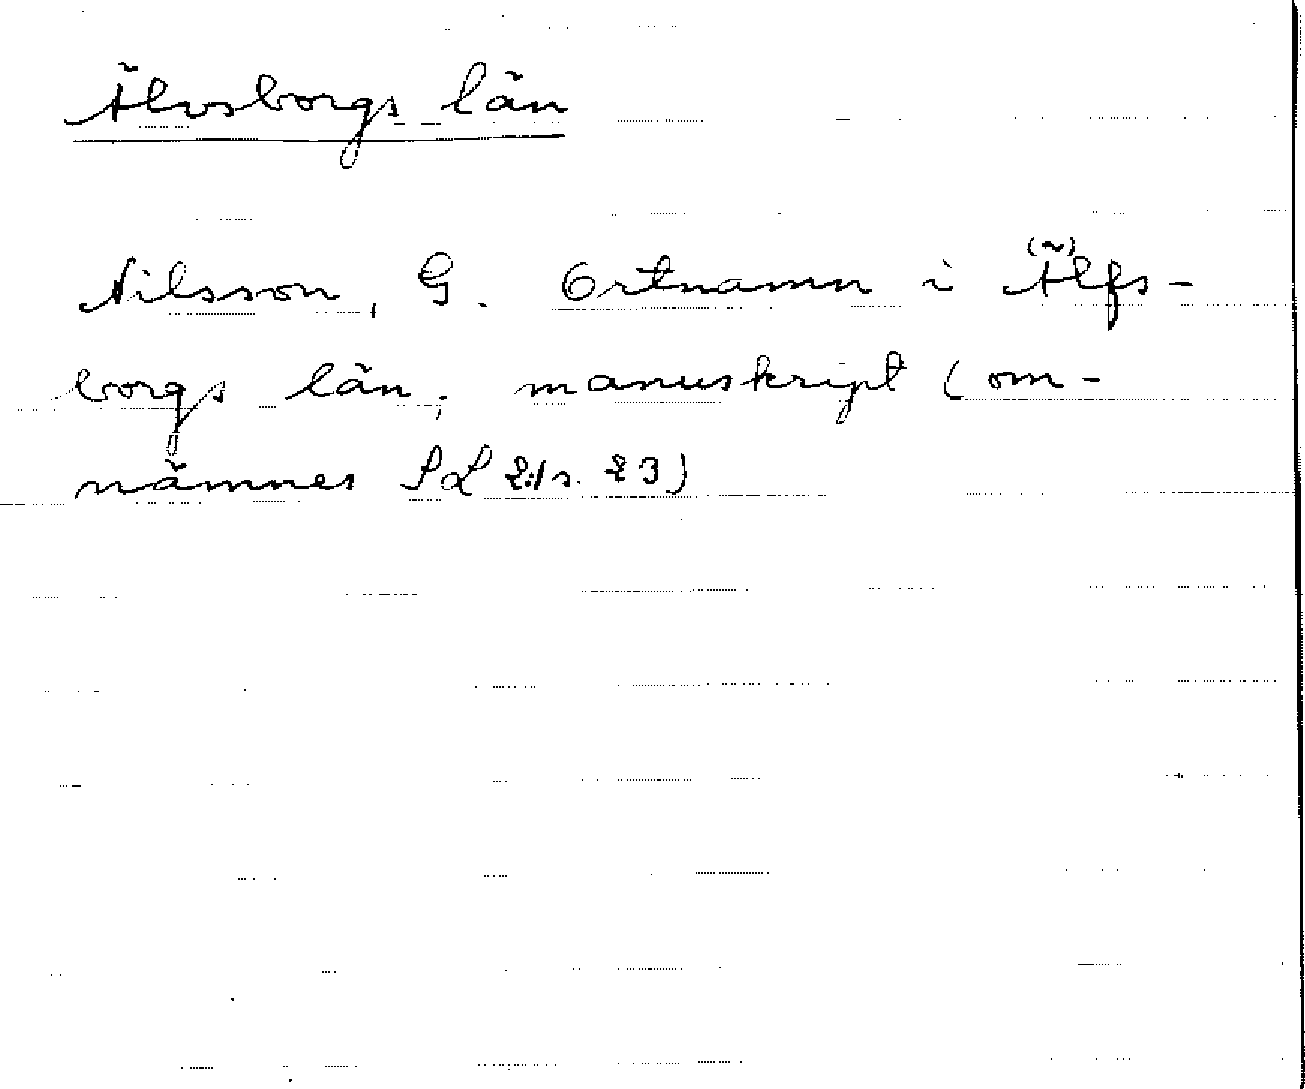 Älvsborgs län
Nilsson, G. Ortnamn i Älfs-
borgs län, manuskript (om-
nämnes SL 2:1 s. 23)